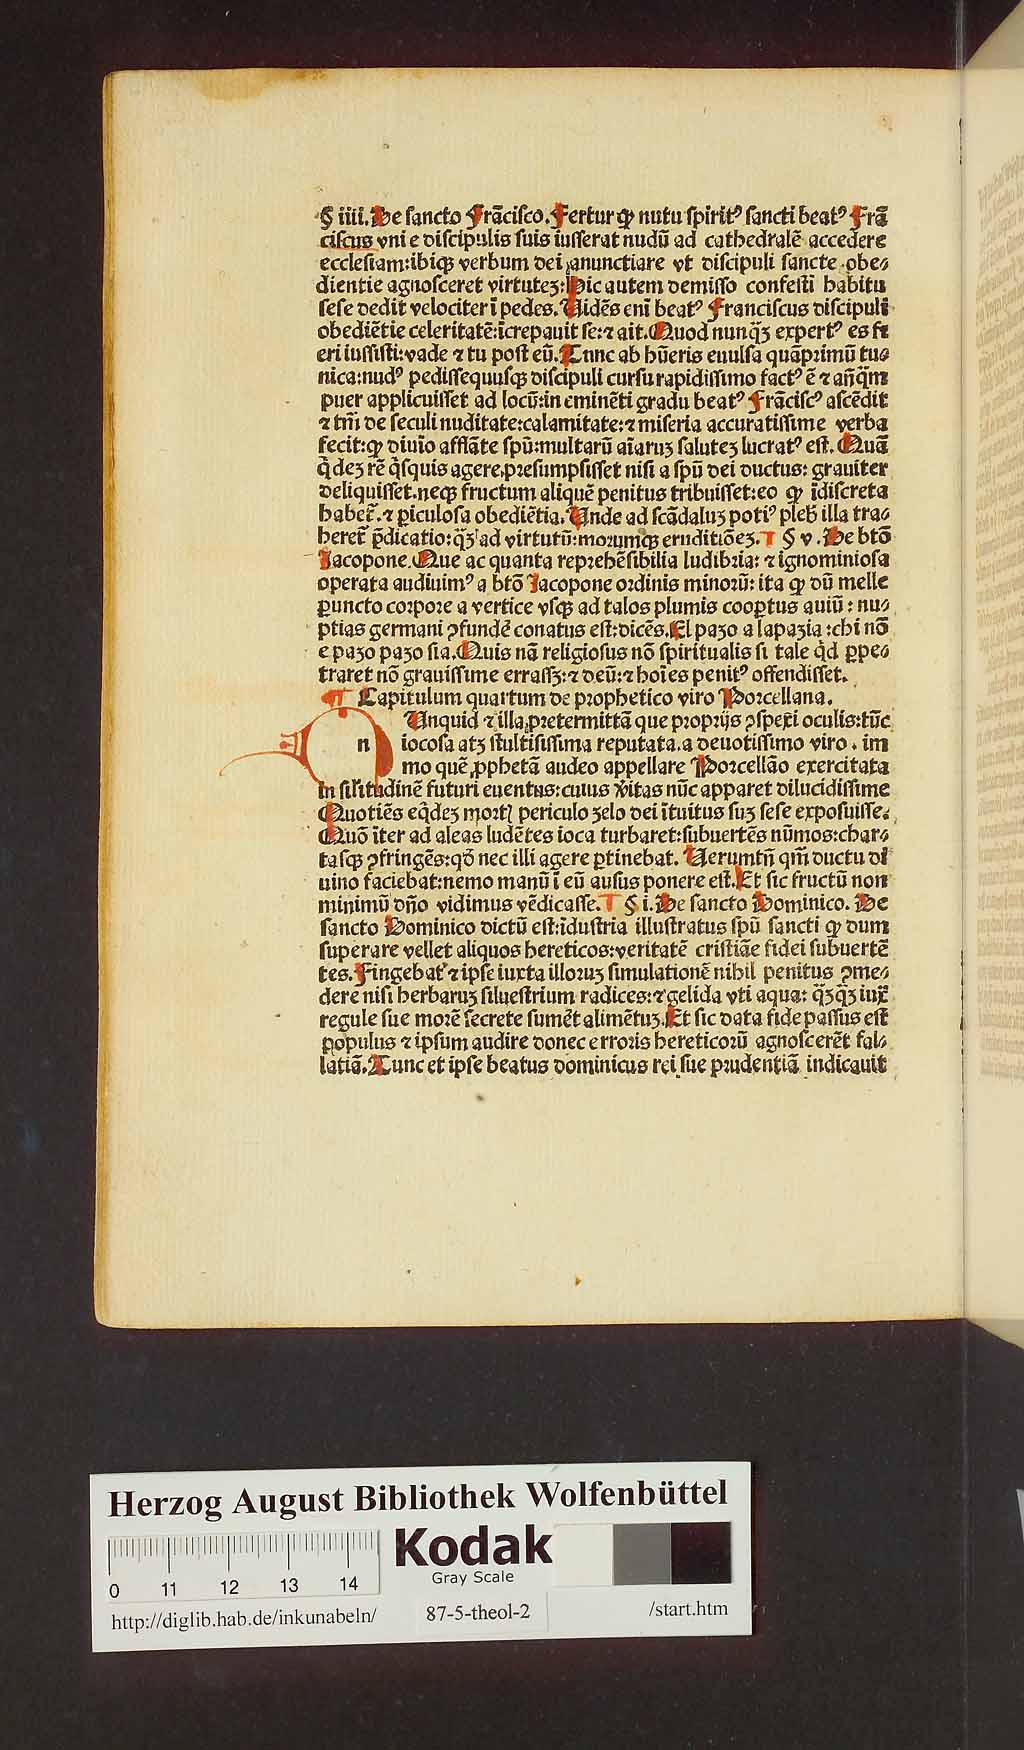 § iiii. De sancto Frãcisco. Fertur ꝙ nutu spiritꝰ sancti beatꝰ Frã
ciscus vni e discipulis suis iusserat nudũ ad cathedralẽ accedere
ecclesiam: ibiqꝫ verbum dei anunctiare vt discipuli sancte obe⸗
dientie agnosceret virtuteʒ: Hic autem demisso confesti habitu
sese dedit velociter ĩ pedes. Uidẽs eni beatꝰ Franciscus discipuli
obediẽtie celeritatẽ: ĩcrepauit se: ⁊ ait. Quod nunq̃ʒ expertꝰ es fi
eri iussisti: vade ⁊ tu post eũ. Tunc ab hũeris euulsa quãprimũ tu⸗
nica: nudꝰ pedissequusqꝫ discipuli cursu rapidissimo factꝰ ẽ ⁊ añq̃m
puer applicuisset ad locũ: in eminẽti gradu beatꝰ Frãciscꝰ ascẽdit
⁊ tm̃ de seculi nuditate: calamitate: ⁊ miseria accuratissime verba
fecit: ꝙ diuĩo afflãte spũ: multarũ aĩaruʒ saluteʒ lucratꝰ est. Quã
q̃deʒ rẽ q̃squis agere presumpsisset nisi a spũ dei ductus: grauiter
deliquisset. neqꝫ fructum aliquẽ penitus tribuisset: eo ꝙ ĩdiscreta
haber̃. ⁊ ꝑiculosa obediẽtia. Unde ad scãdaluʒ potiꝰ pleb̃ illa tra⸗
heret p̃dicatio: q̃ʒ ad virtutũ: morumqꝫ eruditiõeʒ. ¶ § v. De btõ
Jacopone. Que ac quanta reprehẽsibilia ludibria: ⁊ ignominiosa
operata audiuimꝰ a btõ Jacopone ordinis minorũ: ita ꝙ dũ melle
ꝑuncto corpore a vertice vsqꝫ ad talos plumis cooptus auiũ: nu⸗
ptias germani ꝯfundẽ conatus est: dicẽs. El paʒo a lapaʒia: chi nõ
e paʒo paʒo sia. Quis nã religiosus nõ spiritualis si tale q̃d ꝑpe⸗
traret nõ grauissime errassʒ: ⁊ deũ: ⁊ hoĩes penitꝰ offendisset.
¶ Capitulum quartum de prophetico viro Porcellana.
n Unquid ⁊ illa pretermittã que proprijs ꝯsperi oculis: tũc
iocosa atʒ stultisissima reputata. a deuotissimo viro. im
mo quẽ ꝓphetã audeo appellare Porcellão exercitata
in silĩtudinẽ futuri euentus: cuius v̾itas nũc apparet dilucidissime
Quotiẽs eq̃deʒ mortꝭ periculo ʒelo dei ĩtuitus suʒ sese exposuisse.
Quõ ĩter ad aleas ludẽtes ioca turbaret: subuertẽs nũmos: char⸗
tasqꝫ ꝯfringẽs: qd̾ nec illi agere ꝑtinebat. Uerumtñ qm̃ ductu di
uino faciebat: nemo manũ ĩ eũ ausus ponere est. Et sic fructũ non
minimũ dño vidimus vẽdicasse. ¶ § i. De sancto Dominico. De
sancto Dominico dictũ est: ĩdustria illustratus spũ sancti ꝙ dum
superare vellet aliquos hereticos: veritatẽ cristiãe fidei subuertẽ
tes. Fingebat ⁊ ipse iuxta illoruʒ simulationẽ nihil penitus ꝯme⸗
dere nisi herbaruʒ siluestrium radices: ⁊ gelida vti aqua: q̃ʒq̃ʒ iux̃
regule sue morẽ secrete sumẽt alimẽtuʒ. Et sic data fide passus est
populus ⁊ ipsum audire donec erroris hereticorũ agnoscerẽt fal⸗
latiã. Tunc et ipse beatus dominicus rei sue prudentiã indicauit
Herzog August Bibliothek Wolfenbüttel
Kodak
Gray Scale
0 11 12 13 14
http://diglib.hab.de/inkunabeln/ 87-5-theol-2 /start.htm